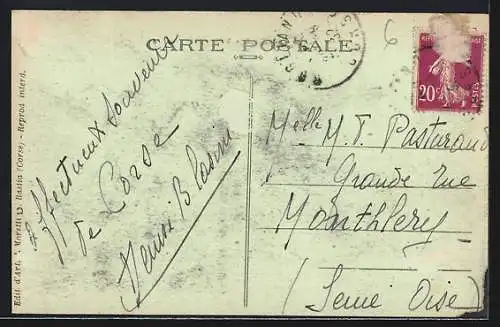 CARTE POSTALE
6
20c
POSTES
Affectueux souvenirs
de Corse
Henri Blasini
Melle M. T. Pasturaud
Grande rue
Monthlery
(Seine Oise)
Edit. d'Art. Moretti D. Bastia (Corse) - Reprod. interd.